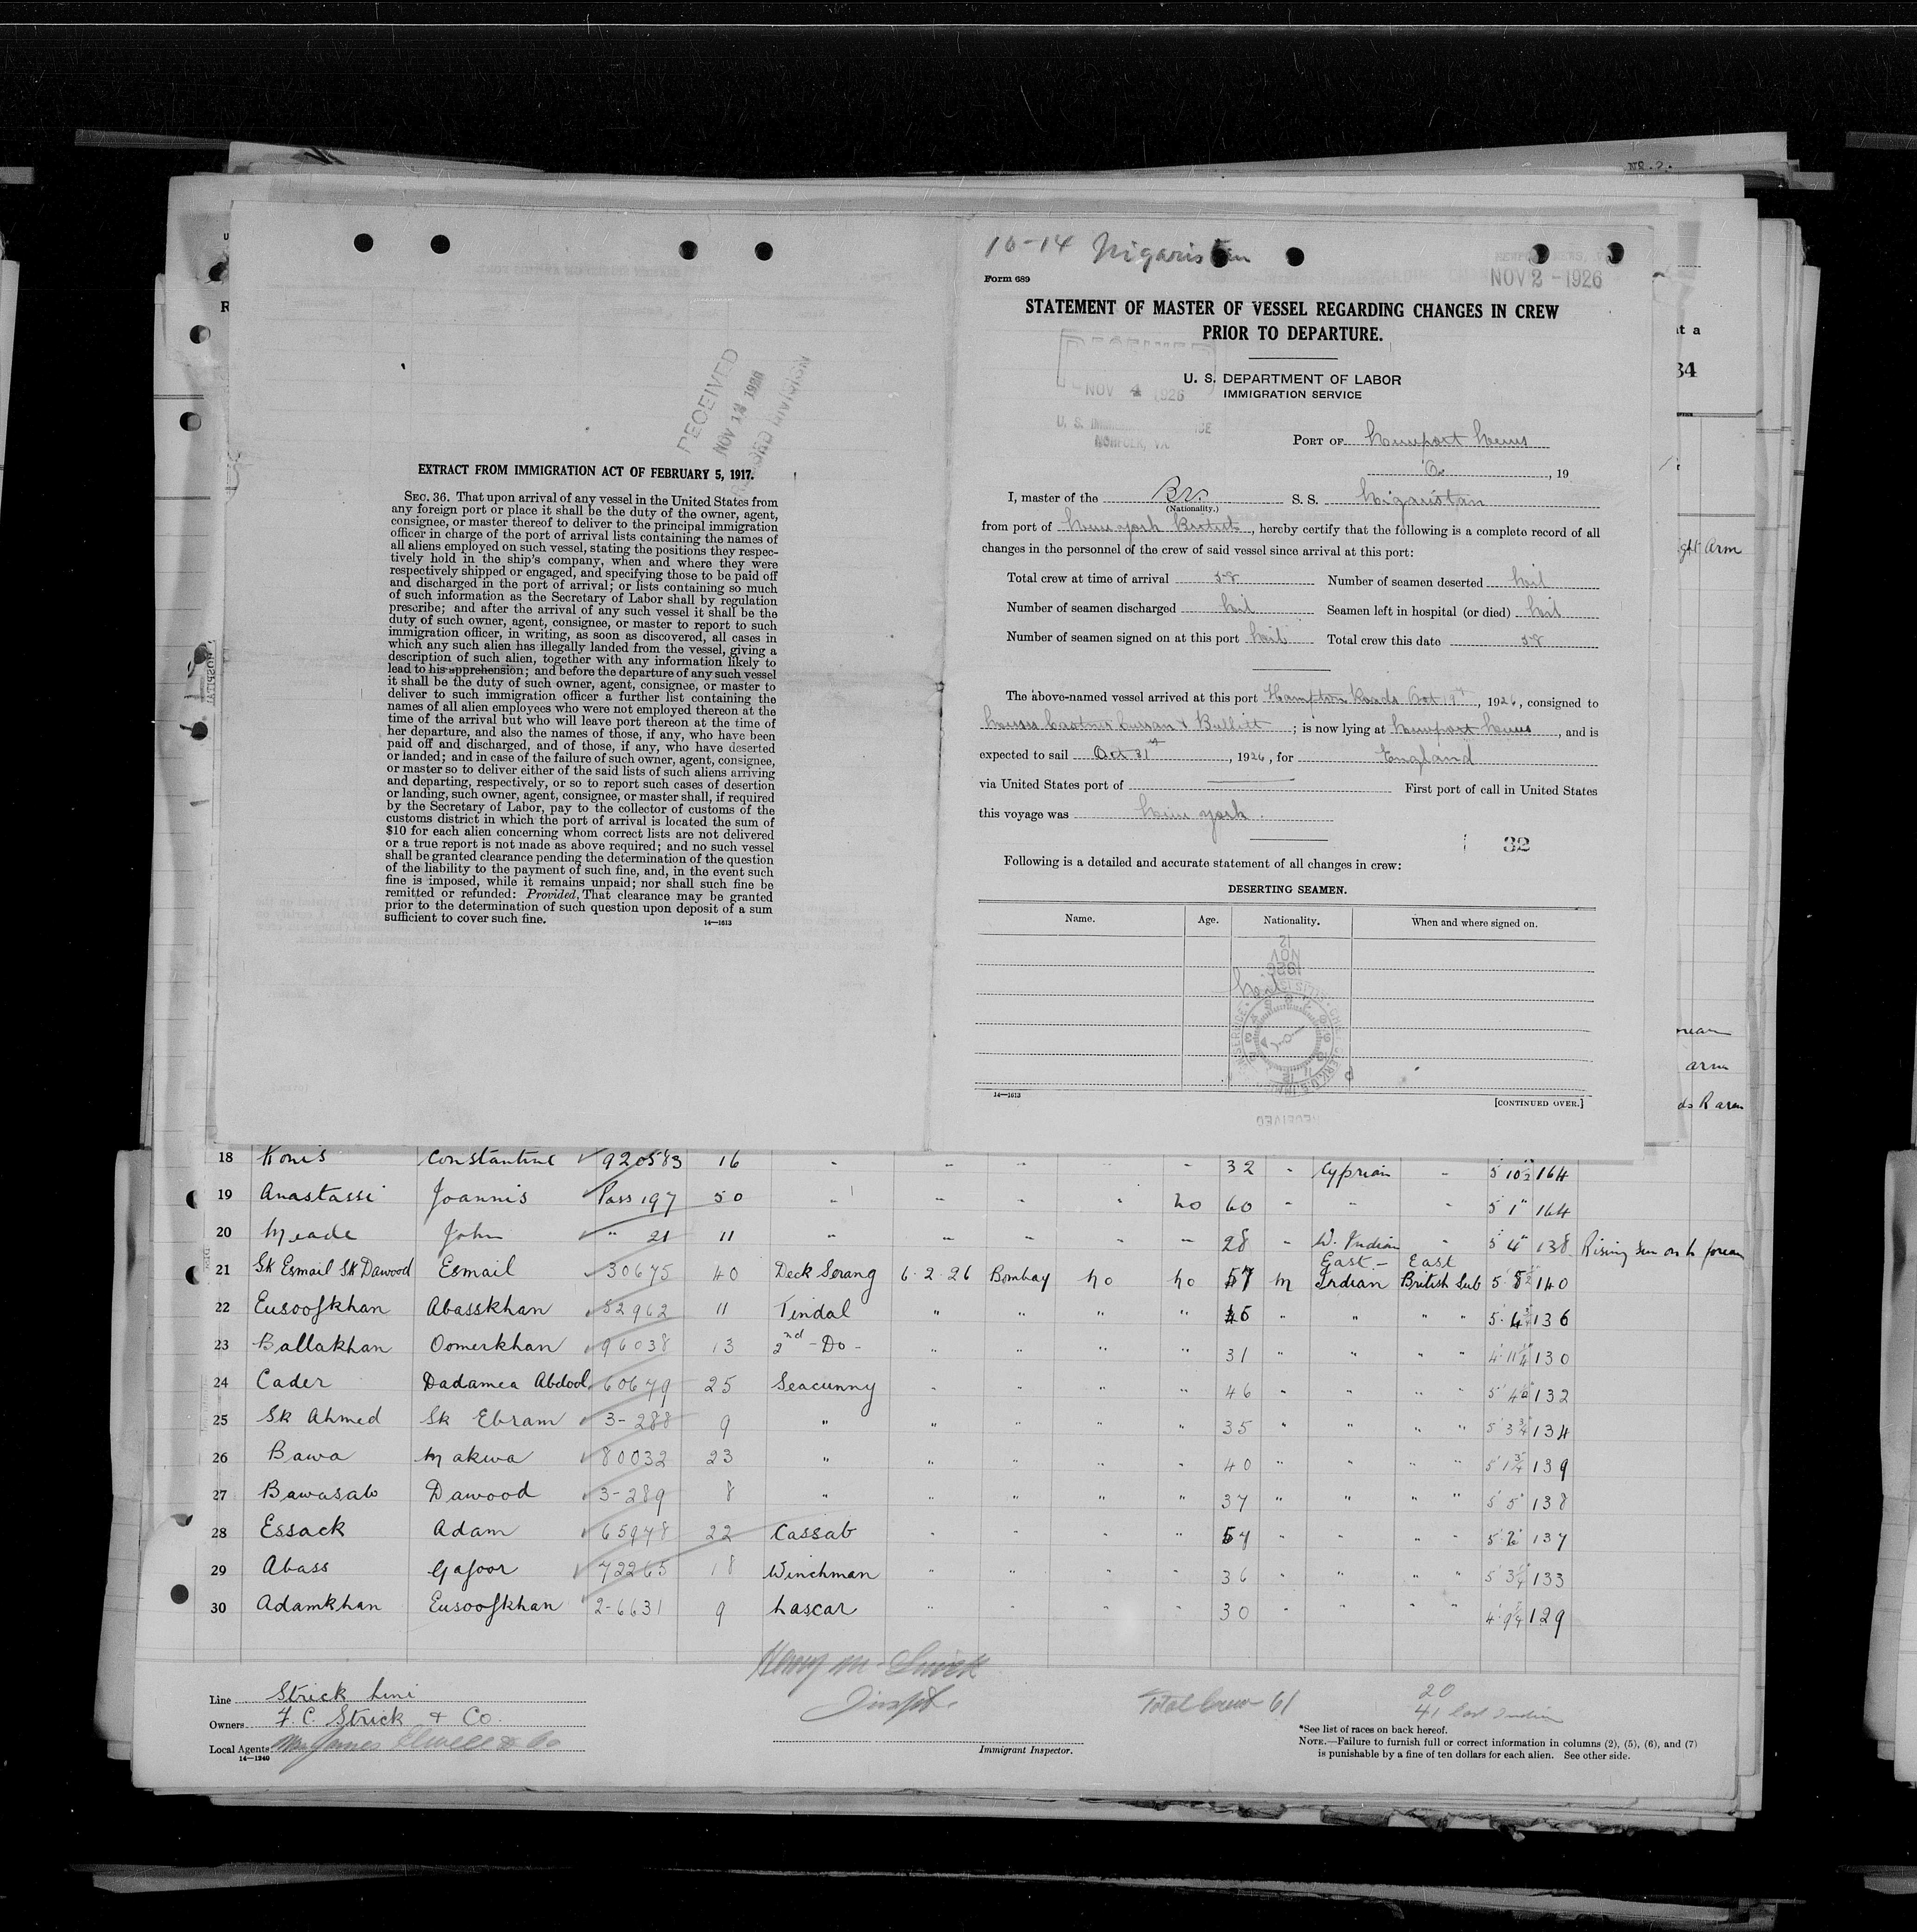 No. 2.
RECEIVED
NOV 12 1926
RECORD DIVISION
EXTRACT FROM IMMIGRATION ACT OF FEBRUARY 5, 1917.
SEC. 36. That upon arrival of any vessel in the United States from
any foreign port or place it shall be the duty of the owner, agent,
consignee, or master thereof to deliver to the principal immigration
officer in charge of the port of arrival lists containing the names of
all aliens employed on such vessel, stating the positions they respec-
tively hold in the ship's company, when and where they were
respectively shipped or engaged, and specifying those to be paid off
and discharged in the port of arrival; or lists containing so much
of such information as the Secretary of Labor shall by regulation
prescribe; and after the arrival of any such vessel it shall be the
duty of such owner, agent, consignee, or master to report to such
immigration officer, in writing, as soon as discovered, all cases in
which any such alien has illegally landed from the vessel, giving a
description of such alien, together with any information likely to
lead to his apprehension; and before the departure of any such vessel
it shall be the duty of such owner, agent, consignee, or master to
deliver to such immigration officer a further list containing the
names of all alien employees who were not employed thereon at the
time of the arrival but who will leave port thereon at the time of
her departure, and also the names of those, if any, who have been
paid off and discharged, and of those, if any, who have deserted
or landed; and in case of the failure of such owner, agent, consignee,
or master so to deliver either of the said lists of such aliens arriving
and departing, respectively, or so to report such cases of desertion
or landing, such owner, agent, consignee, or master shall, if required
by the Secretary of Labor, pay to the collector of customs of the
customs district in which the port of arrival is located the sum of
$10 for each alien concerning whom correct lists are not delivered
or a true report is not made as above required; and no such vessel
shall be granted clearance pending the determination of the question
of the liability to the payment of such fine, and, in the event such
fine is imposed, while it remains unpaid; nor shall such fine be
remitted or refunded: Provided, That clearance may be granted
prior to the determination of such question upon deposit of a sum
sufficient to cover such fine.
14—1613
10-14 Nigaristan
Form 689
NOV 2 - 1926
STATEMENT OF MASTER OF VESSEL REGARDING CHANGES IN CREW
PRIOR TO DEPARTURE.
U. S. DEPARTMENT OF LABOR
IMMIGRATION SERVICE
NOV 4 1926
NORFOLK, VA
PORT OF Newport News
, 19
I, master of the Br. S. S. Nigaristan
(Nationality.)
from port of New York, hereby certify that the following is a complete record of all
changes in the personnel of the crew of said vessel since arrival at this port:
Total crew at time of arrival 58 Number of seamen deserted Nil
Number of seamen discharged Nil Seamen left in hospital (or died) Nil
Number of seamen signed on at this port Nil Total crew this date 58
The above-named vessel arrived at this port Hampton Roads Oct 19th, 1926, consigned to
Messrs Castner Curran & Bullitt; is now lying at Newport News, and is
expected to sail Oct 31st, 1926, for England
via United States port of First port of call in United States
this voyage was New York.
32
Following is a detailed and accurate statement of all changes in crew:
DESERTING SEAMEN.
Name. Age. Nationality. When and where signed on.
12
NOV
1926
Nil
RECEIVED
14—1613 [CONTINUED OVER.]
18 Konis Constantine 920583 16 " " " " " 32 " Cyprian " 5 10½ 164
19 Anastassi Joannis Pass 197 50 " " " " no 60 " " " 5 1" 164
20 Meade John " 21 11 " " " " " 28 " W. Indian " 5 4" 138 Rising Sun on
21 Sk Esmail Sk Dawood Esmail 30675 40 Deck Serang 6.2.26 Bombay no no 57 m East Indian East British Sub 5 8½ 140
22 Eusoofkhan Abasskhan 52962 11 Tindal " " " " 45 " " " " 5.4¾ 136
23 Ballakhan Oomerkhan 96038 13 2nd - Do - " " " " 31 " " " " 4 11¼ 130
24 Cader Dadamea Abdool 60679 25 Seacunny " " " " 46 " " " " 5 4½ 132
25 Sk Ahmed Sk Ebram 3-288 9 " " " " " 35 " " " " 5 3¾ 134
26 Bawa Makwa 80032 23 " " " " " 40 " " " " 5 1¾ 139
27 Bawasab Dawood 3-289 8 " " " " " 37 " " " " 5 5" 138
28 Essack Adam 65978 22 Cassab " " " " 57 " " " " 5 2" 137
29 Abass Gafoor 72265 18 Winchman " " " " 36 " " " " 5 3¼ 133
30 Adamkhan Eusoofkhan 2-6631 9 Lascar " " " " 30 " " " " 4 9¾ 129
Line Strick Line
Owners F. C. Strick & Co.
Local Agents James Elwell & Co
14—1240
Immigrant Inspector.
Total Crew 61
20
41 East Indian
*See list of races on back hereof.
NOTE.—Failure to furnish full or correct information in columns (2), (5), (6), and (7)
is punishable by a fine of ten dollars for each alien. See other side.